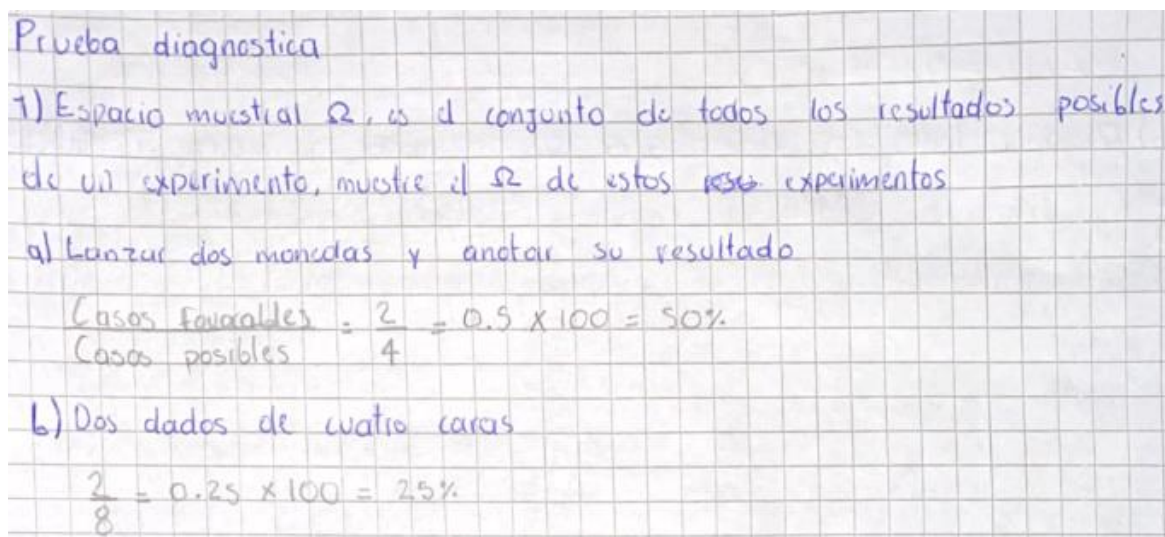 Prueba diagnostica
1) Espacio muestral Ω, es el conjunto de todos los resultados posibles
de un experimento, muestre el Ω de estos experimentos
a) Lanzar dos monedas y anotar su resultado
Casos favorables = 2 = 0.5 x 100 = 50%
Casos posibles 4
b) Dos dados de cuatro caras
2 = 0.25 x 100 = 25%
8